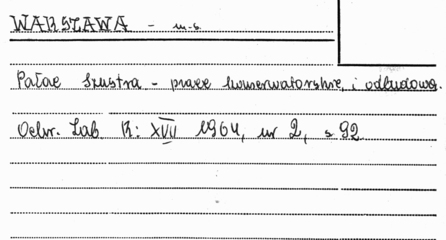 WARSZAWA - m-s.
Pałac Szustra - prace konserwatorskie i odbudowa.
Ochr. Zab. R: XVII 1964, nr 2, s 92